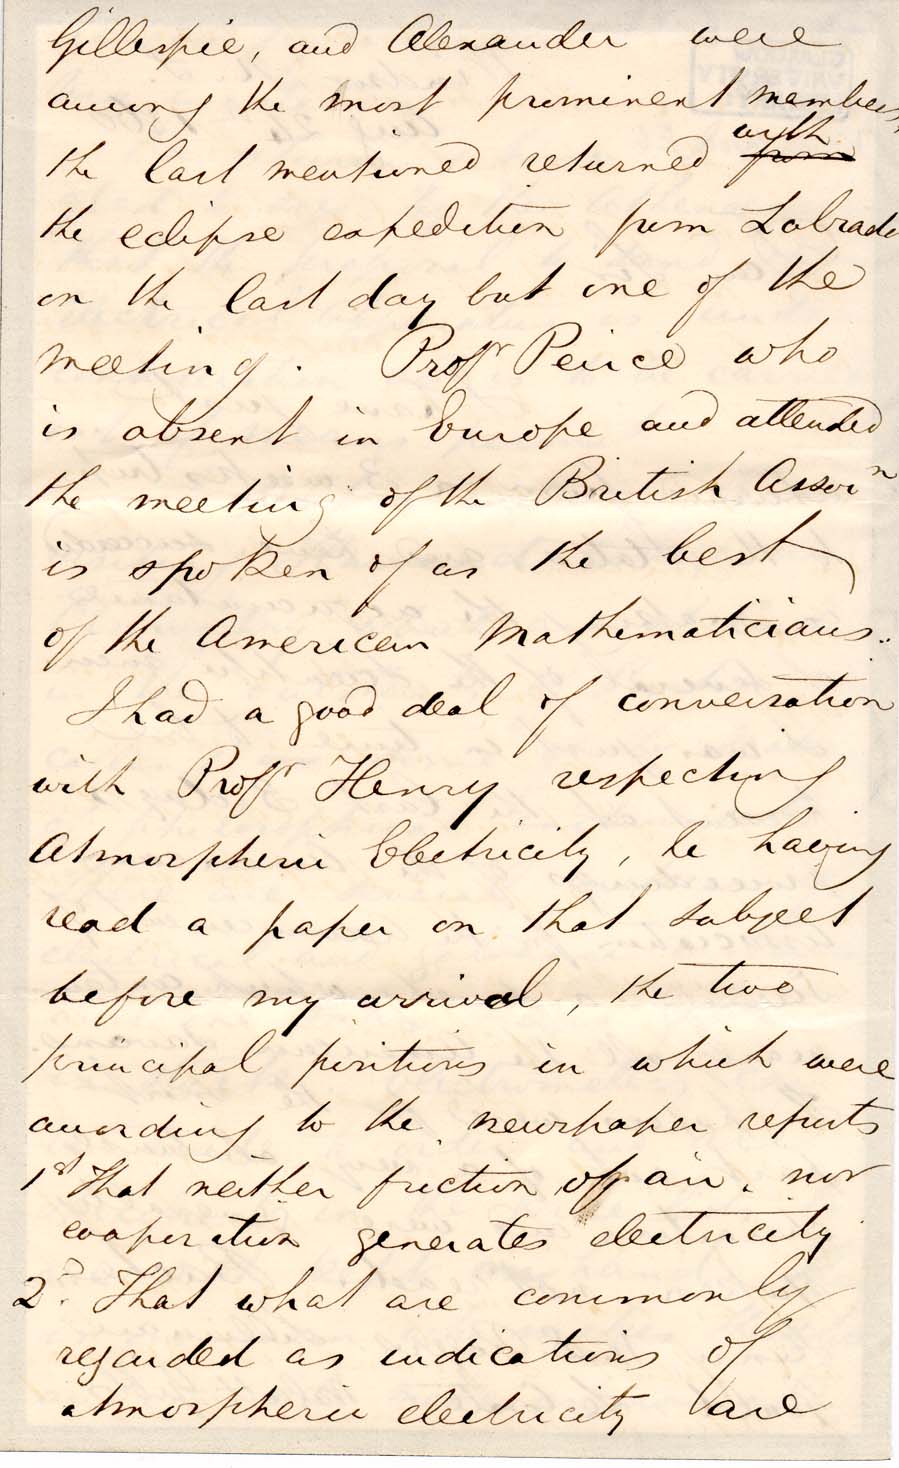 Gillespie, and Alexander were
among the most prominent members,
the last mentioned returned with from
the eclipse expedition from Labrador
on the last day but one of the
meeting. Profr Peirce who
is absent in Europe and attended
the meeting of the British Assocn
is spoken of as the best
of the American Mathematicians.
I had a good deal of conversation
with Profr Henry respecting
Atmospheric Electricity, he having
read a paper on that subject
before my arrival, the two
principal positions in which were
according to the newspaper reports
1st That neither friction of air, nor
evaporation generates electricity
2d. That what are commonly
regarded as indications of
atmospheric electricity are